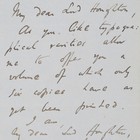 My dear Lord Houghton,
As you like typogra-
phical rarities allow
me to offer you a
volume of which only
six copies have as
yet been printed.
I am
My dear Lord Houghton